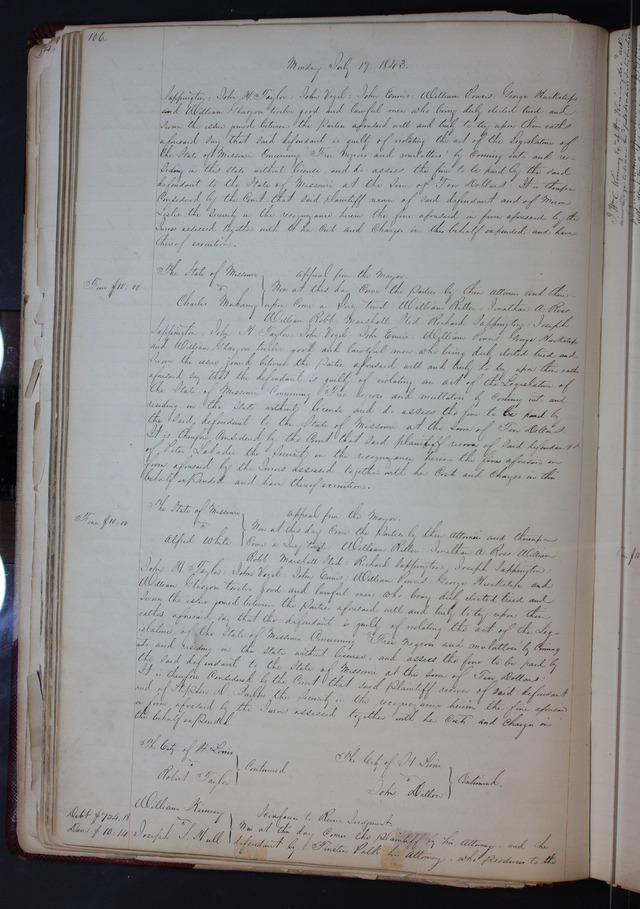 106.
Monday July 17. 1843.
Sappington, John H. Taylor, John Vogel, John Ennis, William Powers, George Huckstep
and William Glasgow twelve good and lawful men who being duly elected tried and
Sworn the issue joined between the Parties aforesaid well and truly to try upon their oaths
aforesaid Say that said defendant is guilty of violating the act of the Legislature of
the State of Missouri Concerning "Free Negroes and mulattoes" by Coming into and re-
siding in this State without license and do assess the fine to be paid by the said
defendant to the State of Missouri at the Sum of Ten Dollars. It is therefore
Considered by the Court that said plaintiff recover of said defendant and of
the Security in the recognizance herein the fine aforesaid in form aforesaid by the
Jurors assessed together with he Cost and Charges in this behalf expended and have
thereof execution.
The State of Missouri appeal from the Mayor
Fine $10.00
vs Now at this day Come the Parties by their Attornies and there-
Charles Mahany upon Came a Jury to wit: William Ritter, Jonathan A. Ross
William Robb, Marshall Sted, Richard Sappington, Joseph
Sappington, John H. Taylor, John Vogel, John Ennis, William Powers, George Huckstep
and William Glasgow twelve good and lawful men who being duly elected tried and
Sworn the issue joined between the Parties aforesaid well and truly to try upon their oaths
aforesaid say that the defendant is guilty of violating an act of the Legislature of
the State of Missouri Concerning "Free negroes and mulattoes" by Coming into and
residing in the State without license and do assess the fine to be paid by
the said defendant to the State of Missouri at the Sum of Ten Dollars
It is therefore Considered by the Court that said plaintiff recover of said defendant &
of Peter the Security in the recognizance herein the fine aforesaid in
form aforesaid by the Jurors assessed together with he Costs and Charges in this
behalf expended and have thereof execution.
The State of Missouri appeal from the Mayor.
Fine $10.00
vs Now at this day Come the Parties by their Attornies and thereupon
Alfred White Came a Jury to wit: William Ritter, Jonathan A. Ross William
Robb, Marshall Sted, Richard Sappington, Joseph Sappington,
John H. Taylor, John Vogel, John Ennis, William Powers, George Huckstep and
William Glasgow twelve good and lawful men who being duly elected tried and
Sworn the issue joined between the Parties aforesaid well and truly to try upon their
oaths aforesaid, say that the defendant is guilty of violating the act of the Leg-
islature of the State of Missouri Concerning "Free Negroes and mulattoes" by Coming
into and residing in the State without license, and assess the fine to be paid by
the said defendant to the State of Missouri at the sum of Ten Dollars.
It is therefore Considered by the Court that said Plaintiff recover of said defendant
and of Stephen the Security in the recognizance herein the fine aforesaid
in form aforesaid by the Jurors assessed together with he Costs and Charges in
this behalf expended
The City of St Louis
vs Continued
Robert Taylor
The City of St Louis
vs Continued.
John Dillon
William
Debt $724.18
vs Scirefacias to Revive Judgment
Dam $10.14
Joseph T. Hull Now at this day Comes the Plaintiff by his Attorney, and the
defendant by Polk his Attorney, who produces to the